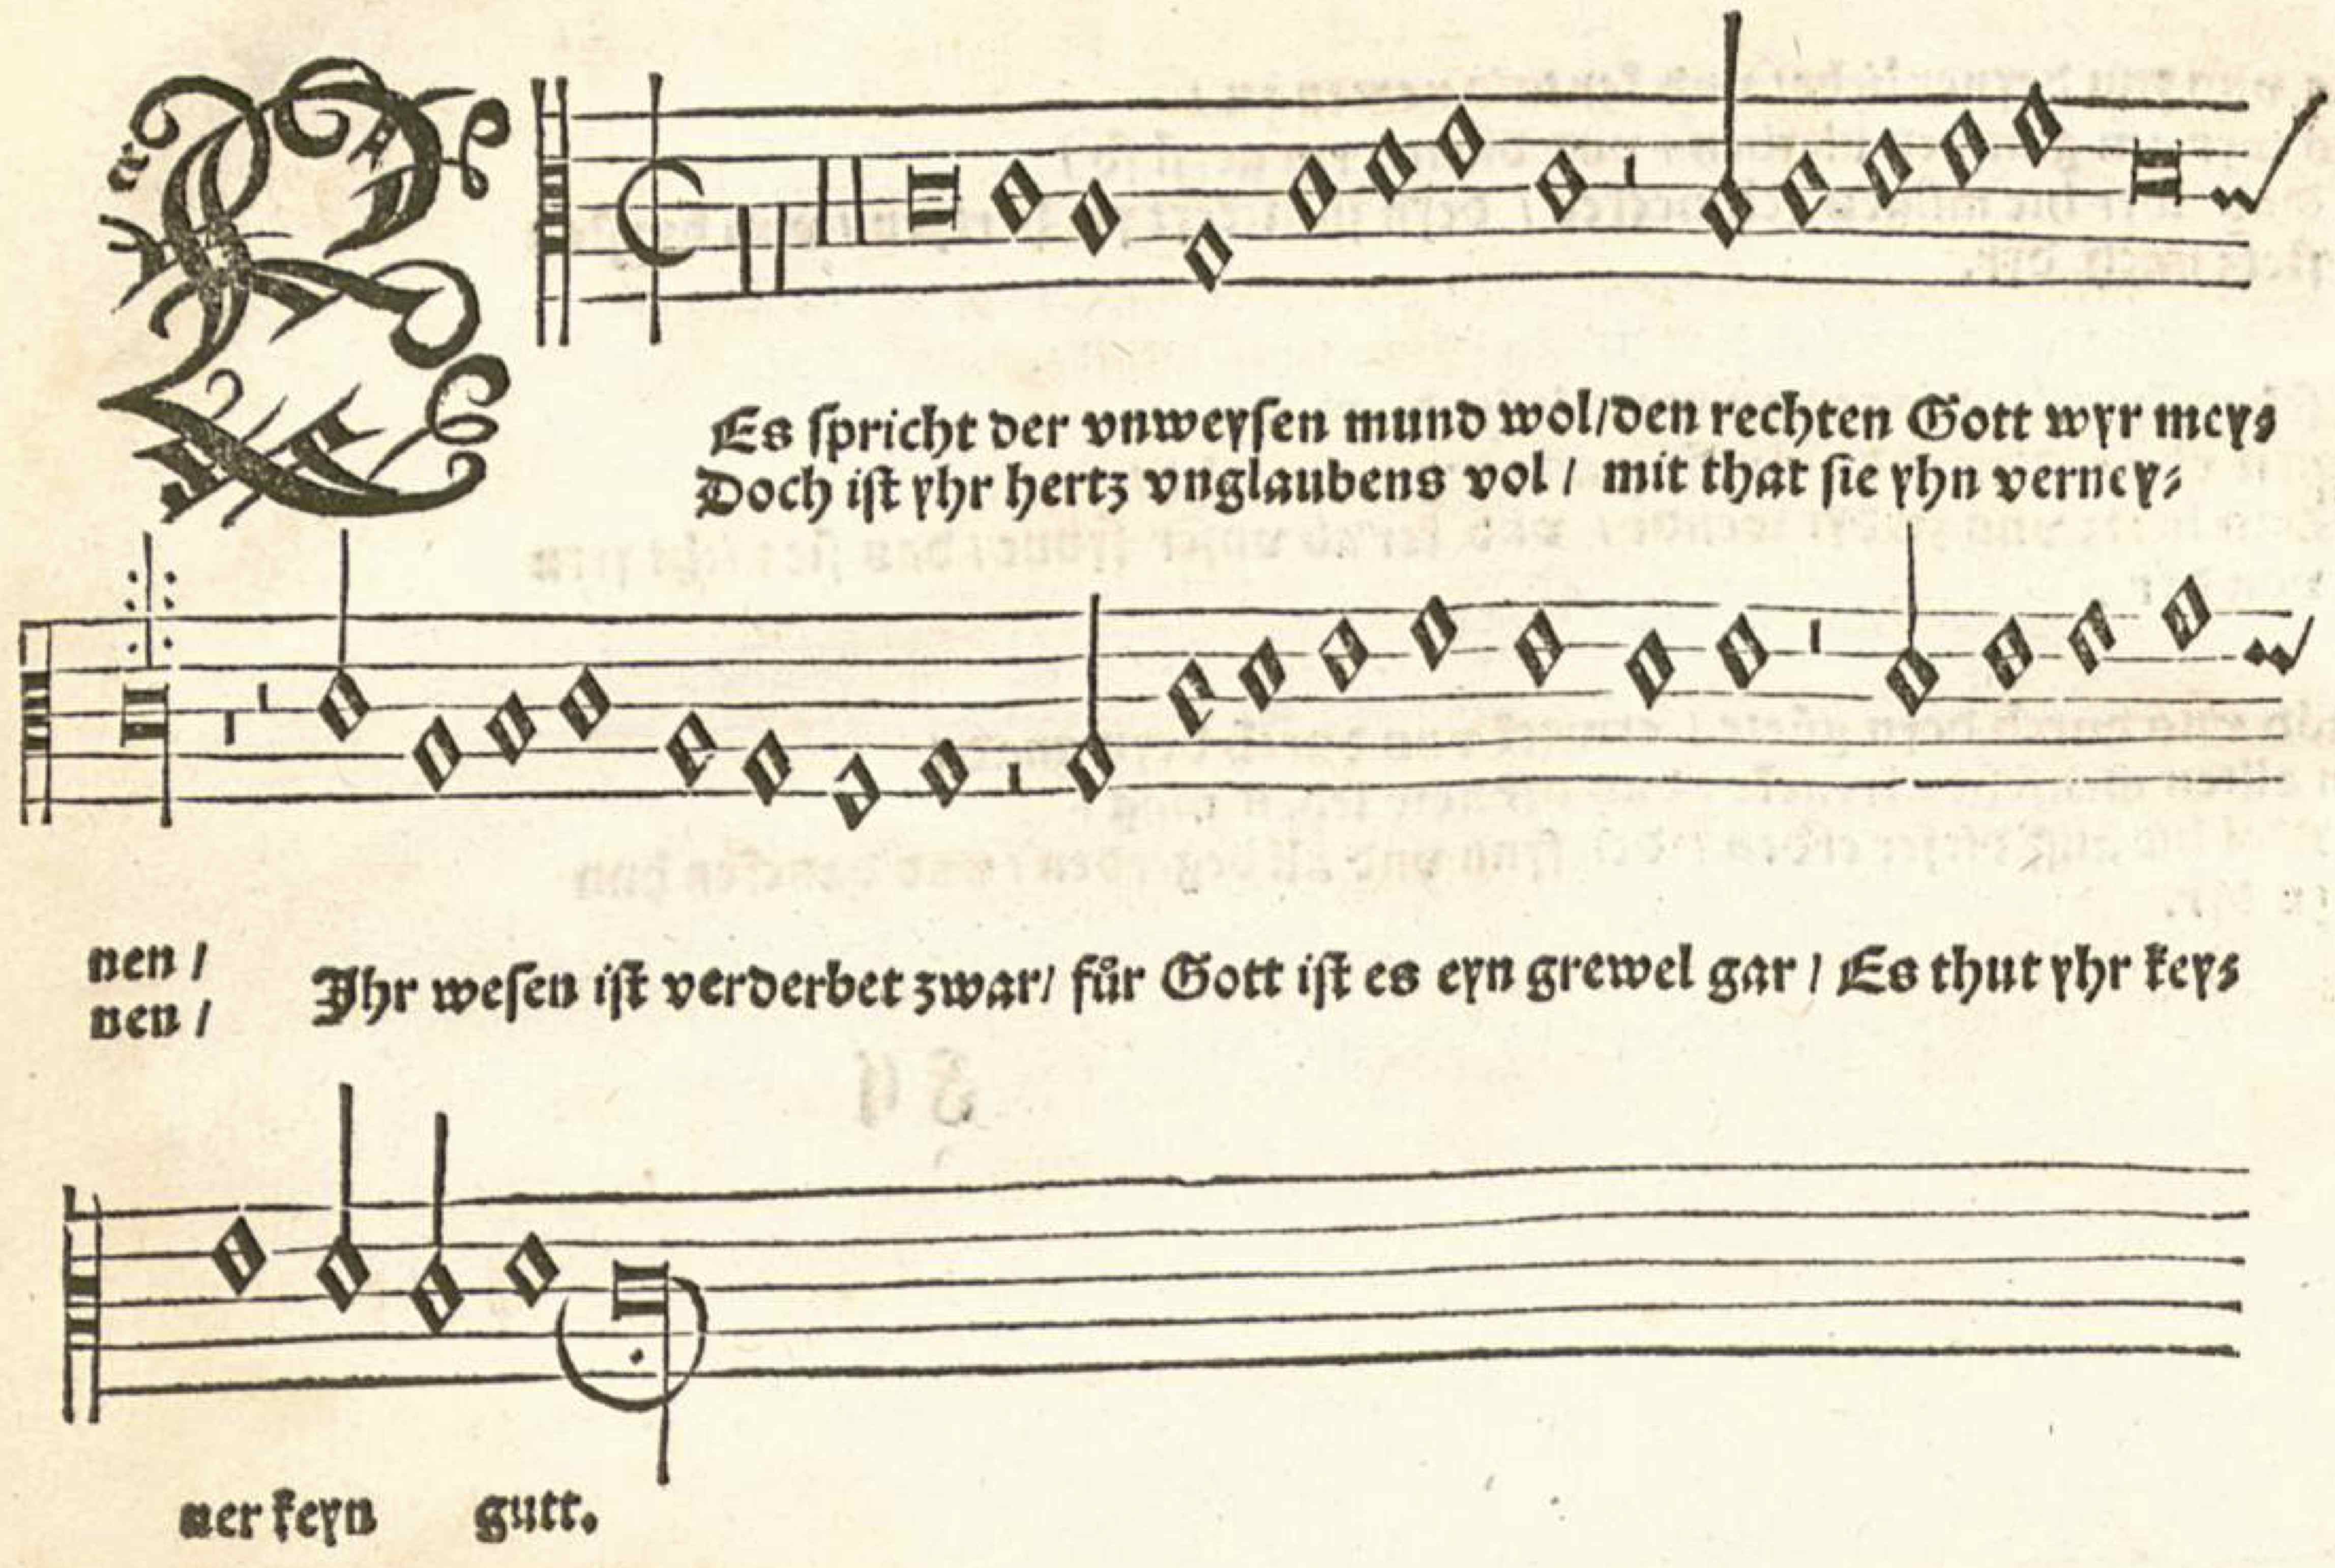 Es spricht der vnweysen mund wol/den rechten Gott wyr mey⸗
Doch ist yhr hertz vnglaubens vol / mit that sie yhn verney⸗
nen / Ihr wesen ist verderbet zwar/ fůr Gott ist es eyn grewel gar / Es thut yhr key⸗
nen /
ner keyn gutt.